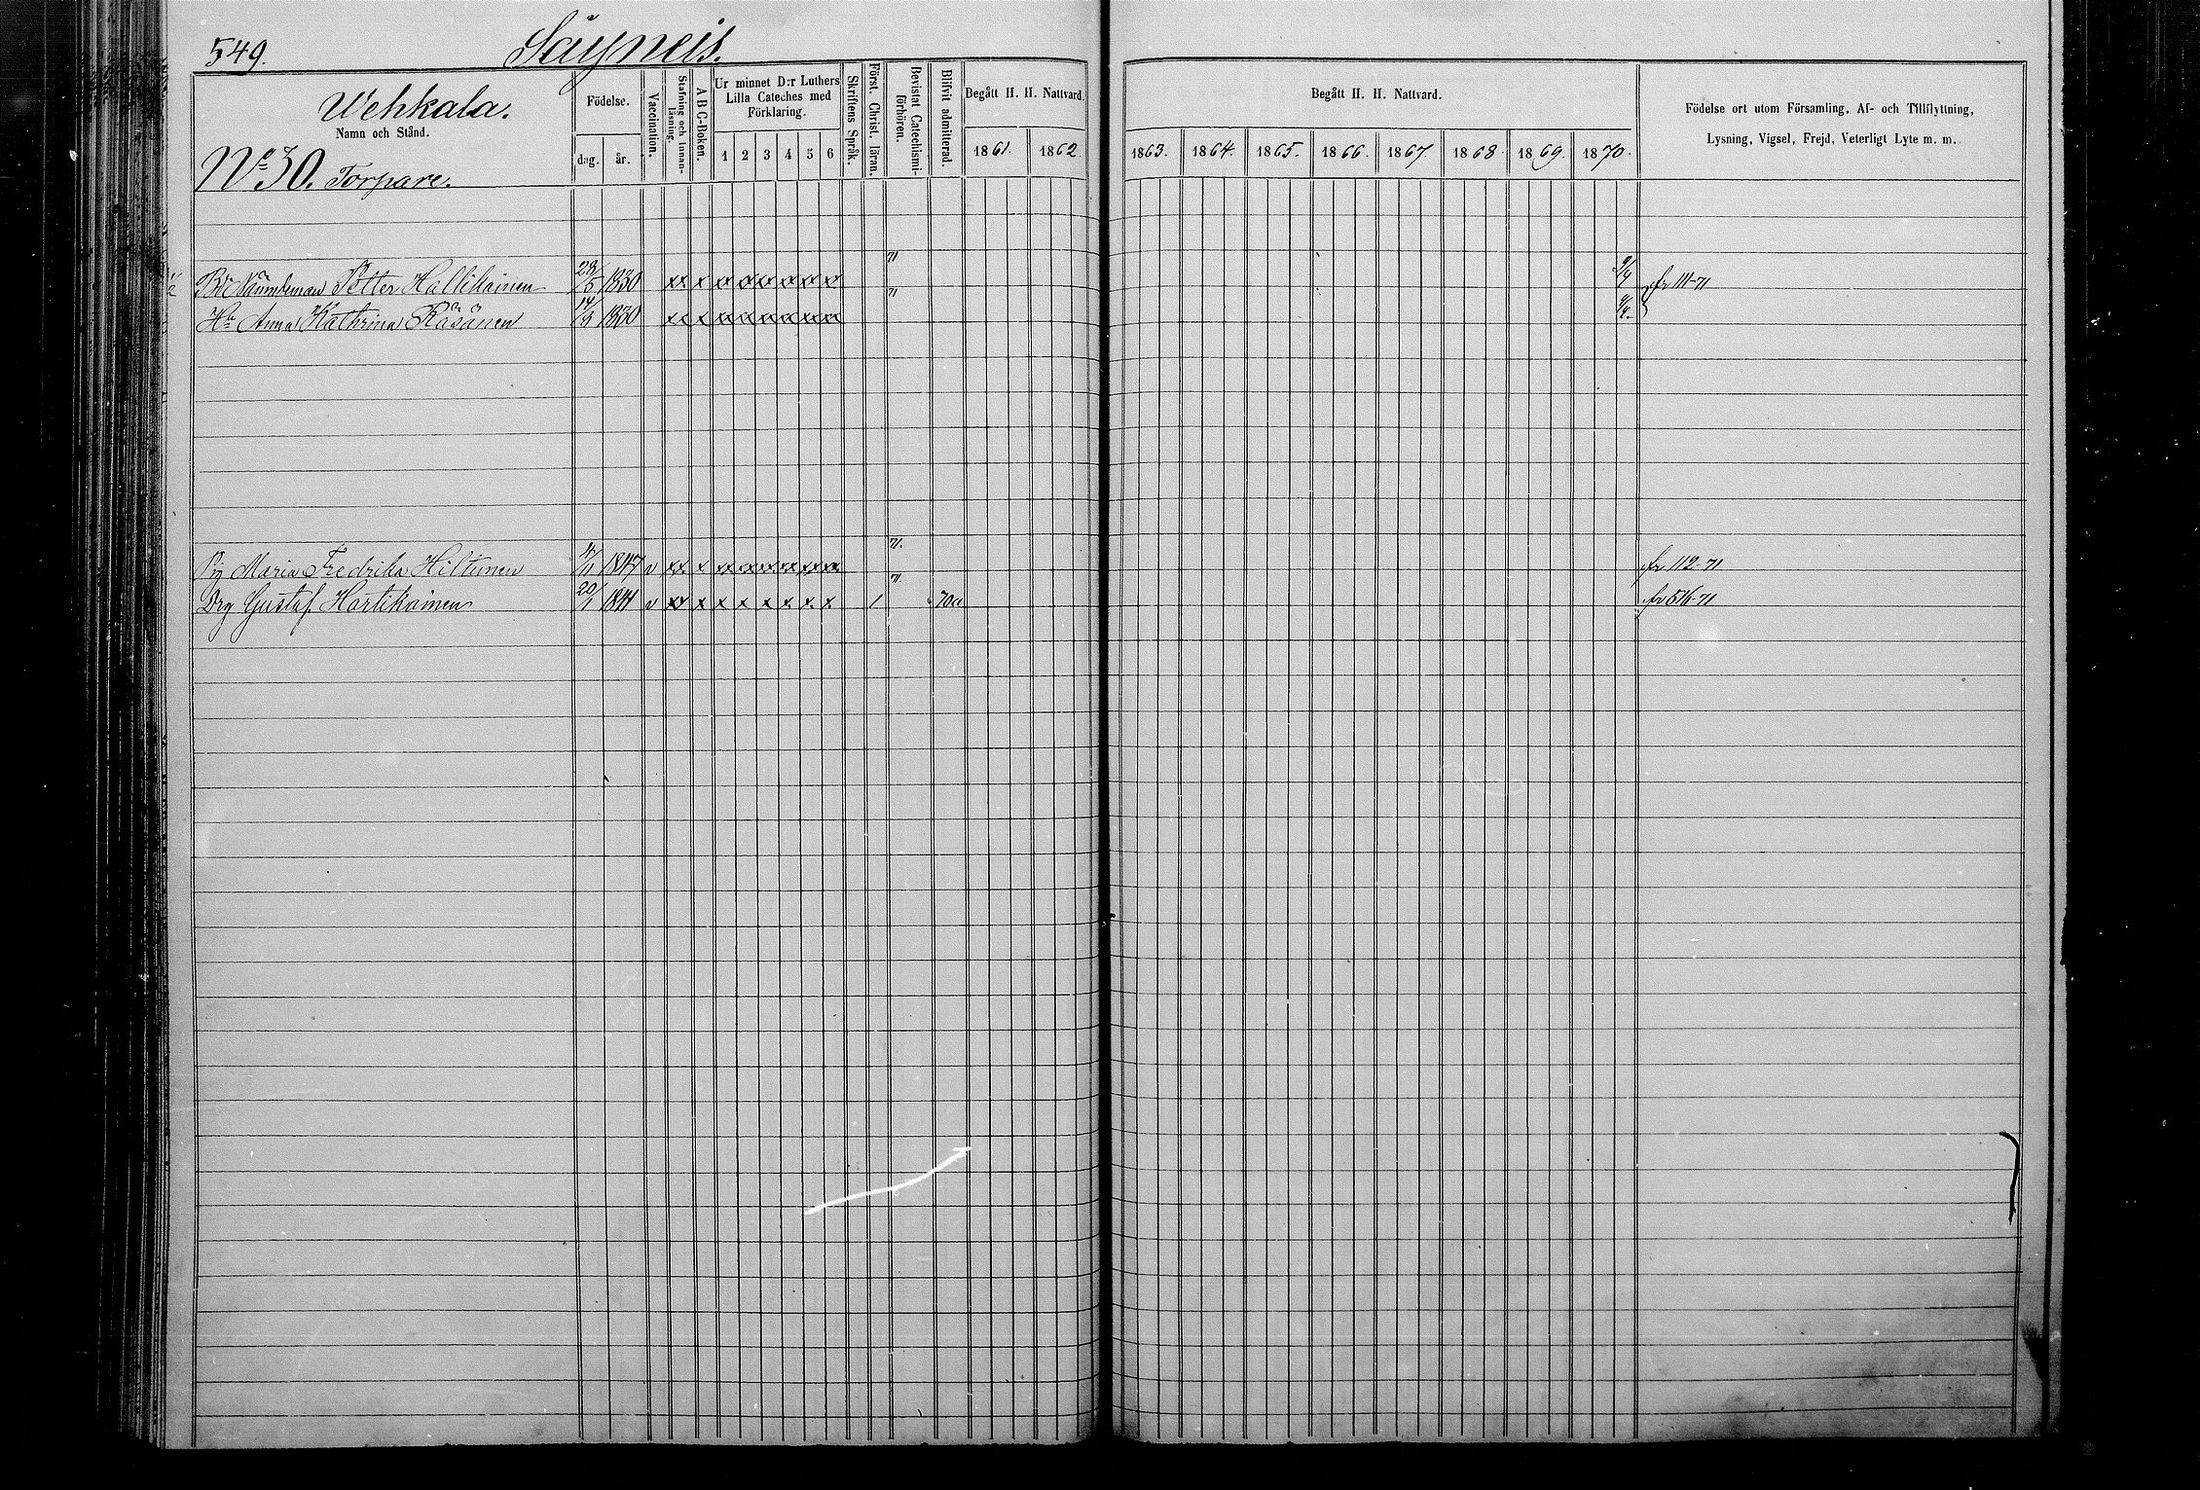 549. Säyneis.
Wehkala.
Namn och Stånd.
No 30. Torpare.
Födelse.
dag. år.
Vaccination.
Stafning och Innanläsning.
A B C-Boken.
Ur minnet D:r Luthers
Lilla Cateches med
Förklaring.
1 2 3 4 5 6
Skriftens Språk.
Först. Christ. läran.
Bevistat Catechismiförhören.
Blifvit admitterad.
Begått H. H. Nattvard.
1861. 1862
Begått H. H. Nattvard.
1863. 1864. 1865. 1866. 1867. 1868. 1869. 1870.
Födelse ort utom Församling, Af- och Tillflyttning,
Lysning, Vigsel, Frejd, Veterligt Lyte m. m.
Nämndeman Petter Hallikainen 28/5 1830 xx x x x x x x x 71 9/4 fr 111-71
Hu Anna Kathrina Räsänen 1830 xx x 71
Pig Maria Fredrika Hiltunen 4/11 1847 v xx x xx xx xx xx xx xx 71. fr 112-71
Drg Gustaf Hartikainen 20/1 1841 v xx x x x x x x x / 71. 70 fr 516-71